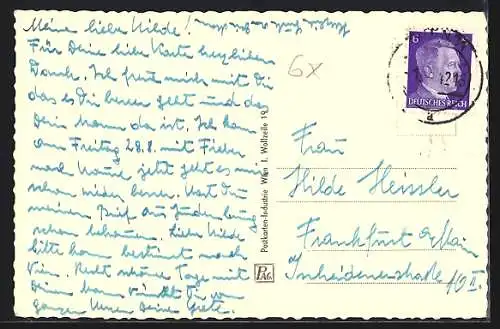 Meine liebe Hilde!
Für Deine liebe Karte herzlichen
Dank. Ich freue mich mit Dir
das es Dir besser geht und das
Dein Mann da ist. Ich kam
am Freitag 28.8. mit Fieber
nach Hause jetzt geht es mir
schon wieder besser. Hast Du
meinen Brief aus Judenburg
schon bekommen. Liebe Hilde
bitte komm bestimmt nach
Wien. Recht schöne Tage mit
Deinem Mann wünscht Dir von
ganzen Herzen Deine Grete.
6x
Postkarten-Industrie Wien I. Wollzeile 19
PAG
6
DEUTSCHES REICH
Frau
Hilde Heissler
Frankfurt a/Main
10 II.